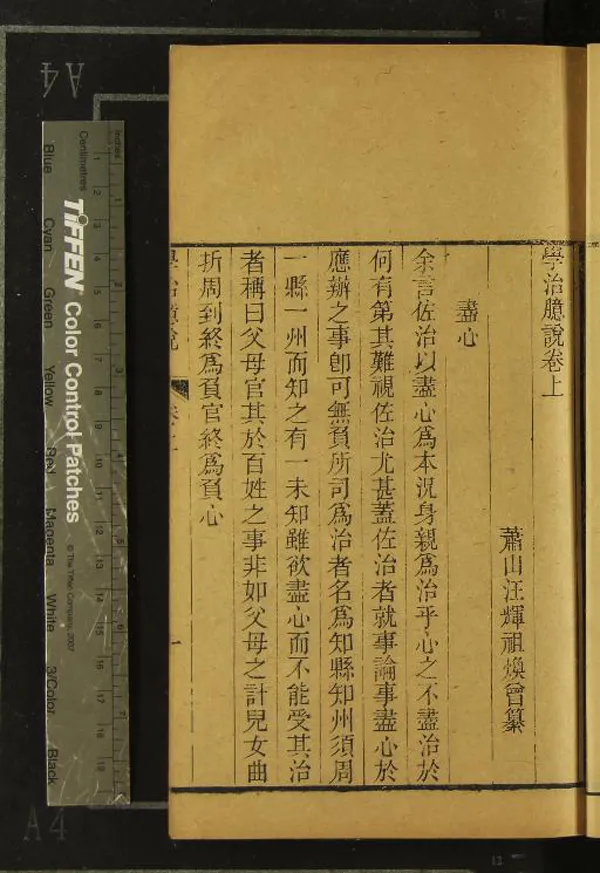 學治臆說卷上
蕭山汪輝祖煥曾纂
盡心
余言佐治以盡心為本況身親為治乎心之不盡治於
何有第其難視佐治尤甚蓋佐治者就事論事盡心於
應辦之事卽可無負所司為治者名為知縣知州須周
一縣一州而知之有一未知雖欲盡心而不能受其治
者稱曰父母官其於百姓之事非如父母之計兒女曲
折周到終為負官終為負心
學治臆說 卷上 一
inches
Centimetres
TIFFEN Color Control Patches
© The Tiffen Company, 2007
Blue
Cyan
Green
Yellow
Red
Magenta
White
3/Color
Black
1 2 3 4 5 6 7
1 2 3 4 5 6 7 8 9 10 11 12 13 14 15 16 17 18 19
A4
A4